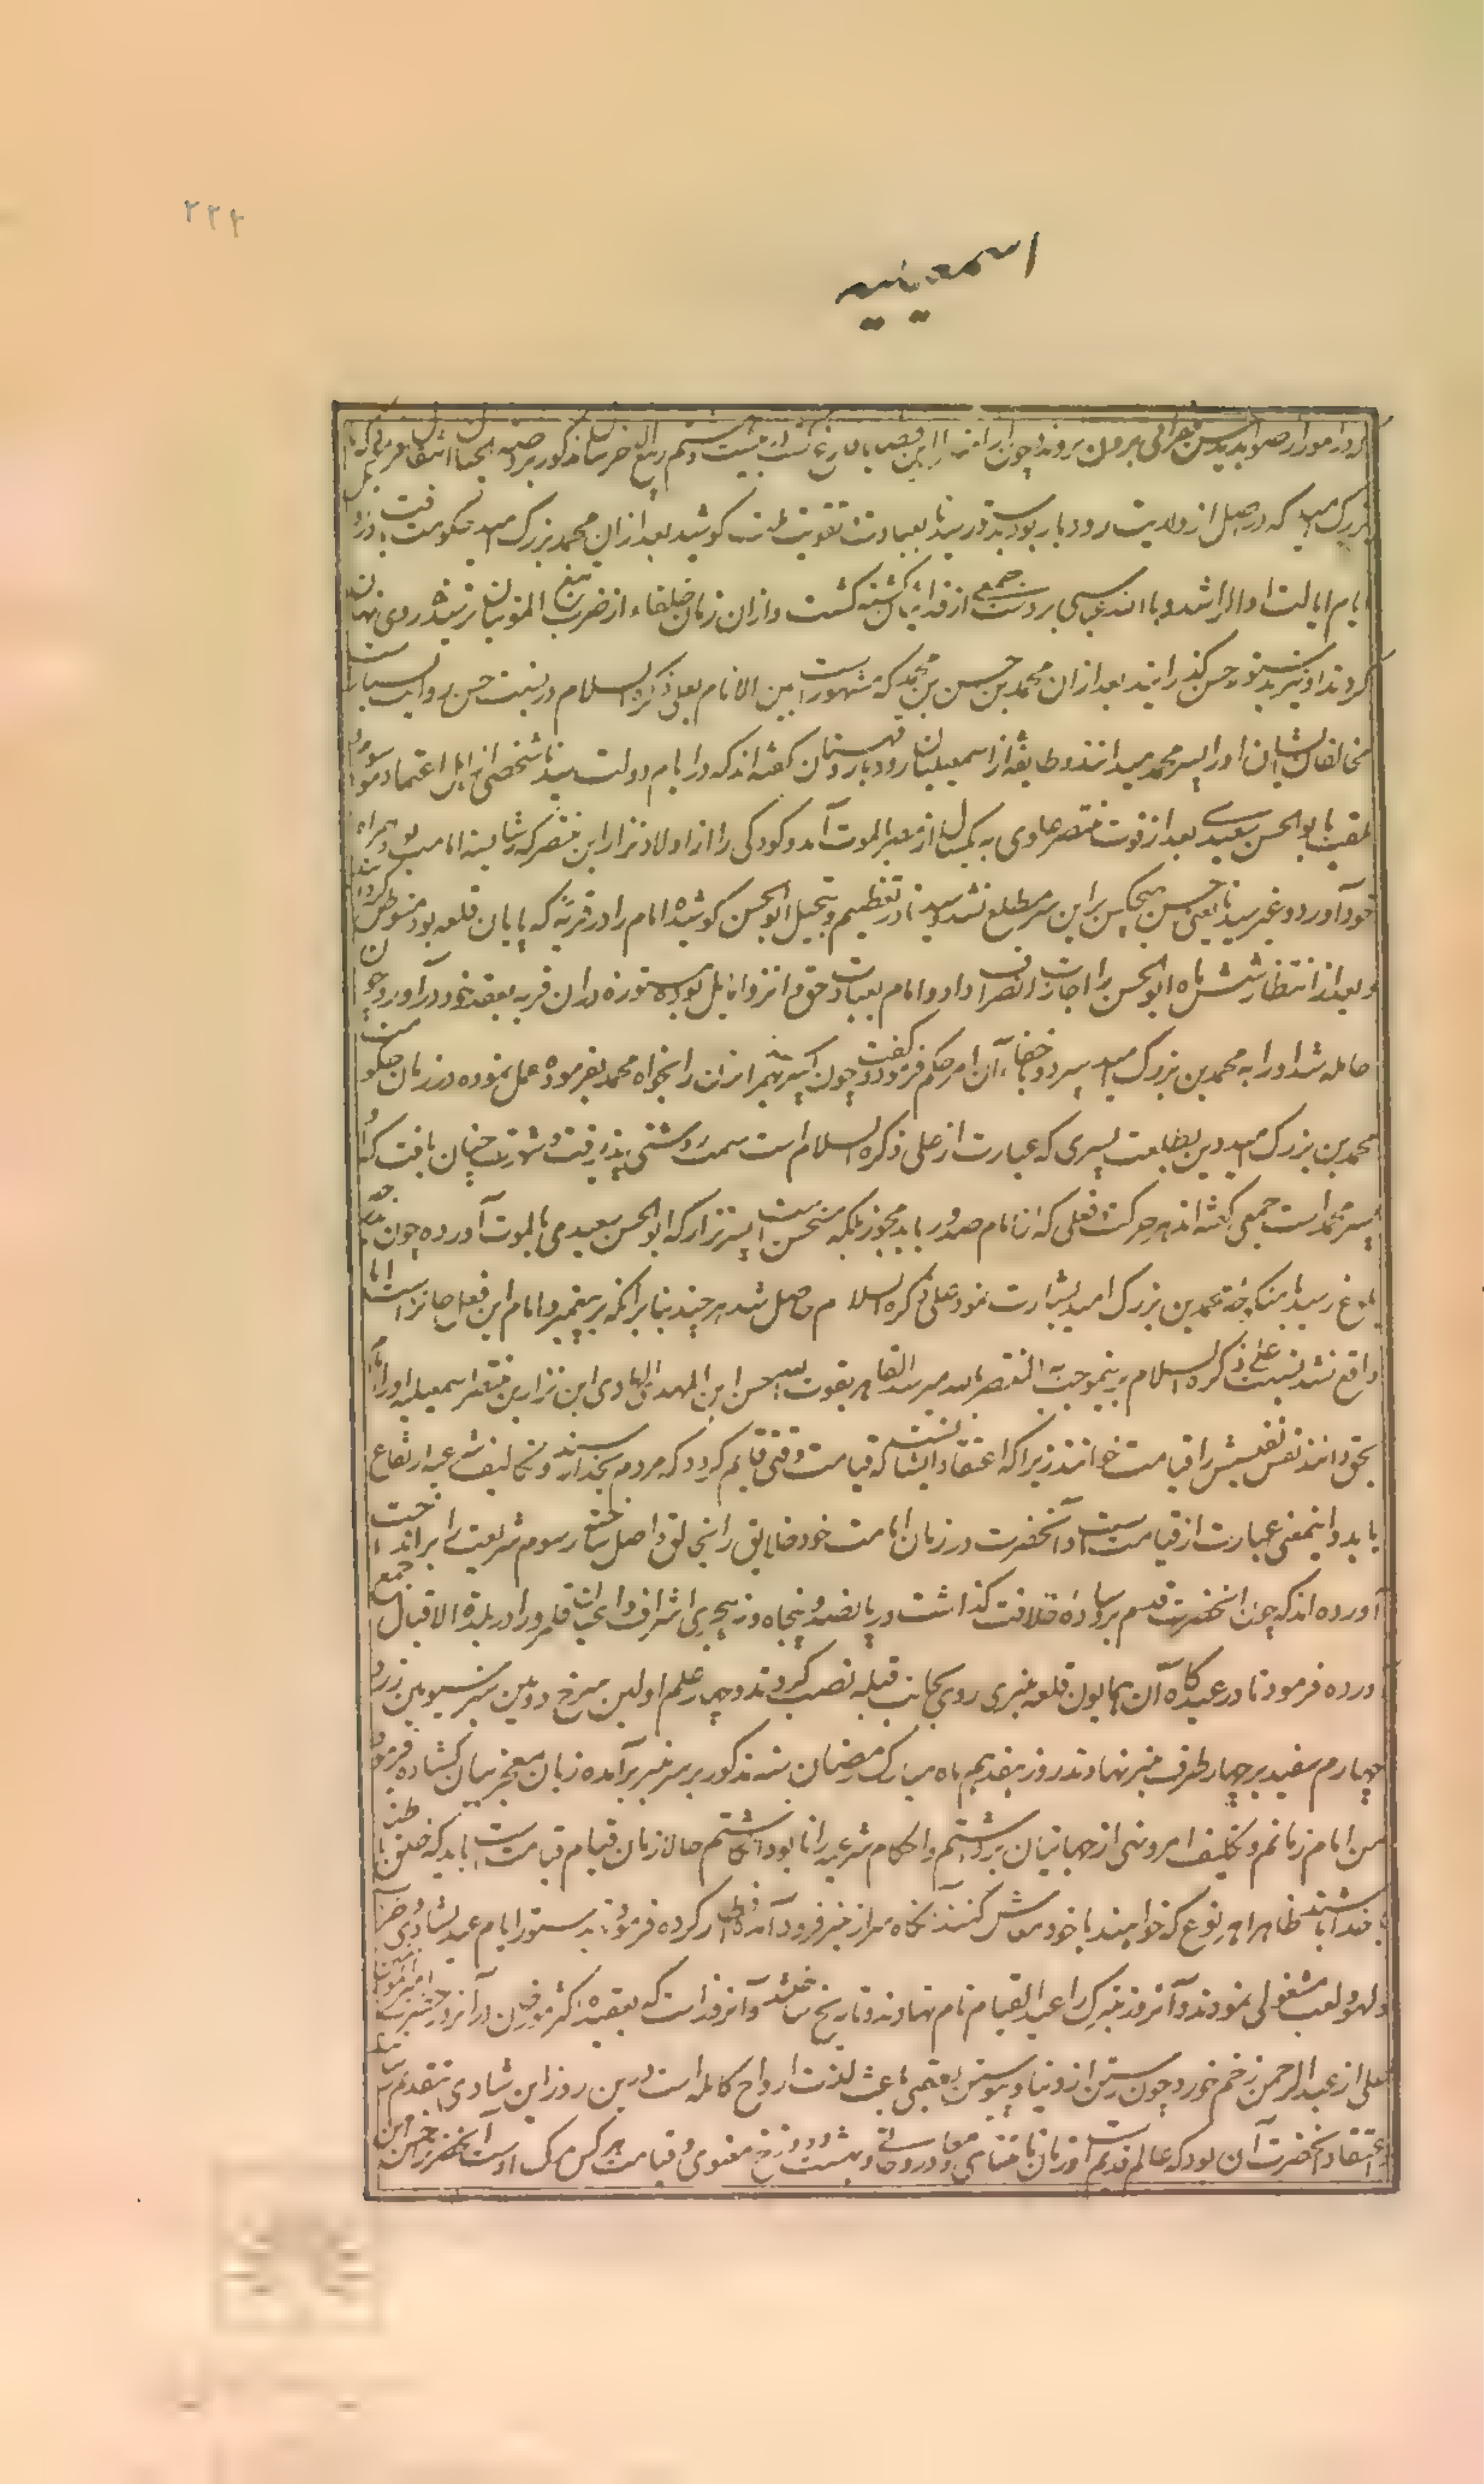 ۲۲۲
اسمعیلیه
بزرگ امید که در اصل از ولایت رودبار بود بدستور سیدنا بعبادت و تقویت ملت کوشید بعد از آن محمد بن بزرگ امید حکومت یافت و در
ایام ایالت او الراشد باالله عباسی بر دست جمعی از فدائیان کشته گشت و از آن زمان خلفاء از ضرب تیغ المونیان ترسیده روی نهان
کردند او نیز بدستور حسن گذرانید بعد از آن محمد بن حسن بن محمد که مشهور است بین الانام بعلی ذکره السلام در نسبت حسن روایت بسیار است
مخالفان ایشان او را پسر محمد میدانند و طایفه از اسمعیلیان رودبار و قهستان گفته اند که در ایام دولت سیدنا شخصی از اهل اعتماد موسوم
ملقب بابو الحسن سعیدی بعد از فوت منتصر علوی به یکسال از مصر بالموت آمد و کودکی را از اولاد نزار ابن منتصر که شایسته امامت بود همراه
خود آورد و غیر سیدنا یعنی حسن هیچکس برین سر مطلع نشد و سیدنا در تعظیم و تبجیل ابوالحسن کوشیده امام را در قریه که پایان قلعه بود متوطن گردانید
و بعد از انتظار شش ماه ابوالحسن را اجازت انصراف داد و امام بعبادت حق و انزوا مایل بوده مستوره در آن قریه بعقد خود درآورد چون
حامله شد او را به محمد بن بزرگ امید سپرد و باخفاء آن امر حکم فرمود
محمد بن بزرگ امید بدین طلعت پسری که عبارت از علی ذکره السلام است سمت روشنی پذیرفت و شهرت چنان یافت که او
پسر محمد است جمعی گفته اند هر حرکت و فعلی که از امام صدور یابد مجوز بلکه مستحسن است پسر نزار که ابوالحسن سعیدی بالموت آورده چون بحد
بلوغ رسید بامنکوحه محمد بن بزرگ امید مباشرت نمود علی ذکره السلام حاصل شد هر چند بنا بر آنکه بر پیغمبر و امام این فعل جایز است اما
واقع نشد نسبت علی ذکره السلام برینموجب حسن ابن المهدی ابن الهادی ابن نزار بن منتصر اسمعیلیه او را امام
بحق دانند نفس نفیسش را قیامت خوانند زیرا که اعتقاد ایشان آنست که قیامت وقتی قایم گردد که مردم بخدا رسند و تکالیف شرعیه ارتفاع
یابد و اینمعنی عبارت از قیامت است و آنحضرت در زمان امامت خود خلایق را بخالق واصل ساخته رسوم شریعت را برانداخت
آورده اند که چون آنحضرت قدم بر وساده خلافت گذاشت در پانصد و پنجاه و نه هجری اشراف و اعیان قلمرو را در بلدة الاقبال جمع
آورده فرمود تا در عیدگاه آن همایون قلعه منبری روی بجانب قبله نصب کردند و چهار علم اولین سرخ دومین سبز سیومین زرد
چهارم سفید بر چهار طرف منبر نهادند روز هفدهم ماه مبارک رمضان سنه مذکور بر سر منبر برآمده زبان معجز بیان گشاده فرمود
من امام زمانم و تکلیف امر و نهی از جهانیان برداشتم و احکام شرعیه را نابود انگاشتم حالا زمان قیام قیامت است باید که خلق باطن
با خدا باشند ظاهرا هر نوع که خواهند با خود معاش کنند آنگاه از منبر فرود آمده افطار کرده فرمود تا بدستور ایام عید بشادی
و لهو و لعب مشغولی نمودند و آنروز متبرک را عید القیام نام نهادند و تاریخ ساختند و آنروز است که بعقیده اکثر مورخین در آنروز حضرت امیرالمومنین
علی از عبدالرحمن زخم خورد و چون رستن از دنیا و پیوستن بعقبی باعث لذت ارواح کامله است درین روز این شادی بتقدیم رسید
اعتقاد آنحضرت آن بود که عالم قدیم است و زمان نامتناهی و معاد روحانی و بهشت و دوزخ معنوی و قیامت هر کس مرگ اوست